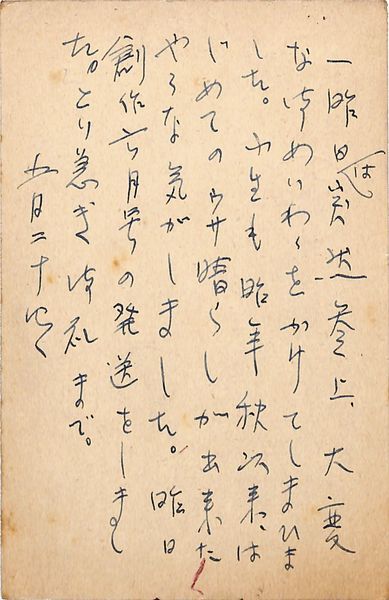 一昨日は突然参上、大変
な御めいわくをかけてしまひま
した。小生も昨年秋以来は
じめてのウサ晴らしが出来た
やうな気がしました。昨日
創作六月号の発送をしまし
た。とり急ぎ御礼まで。
五月二十